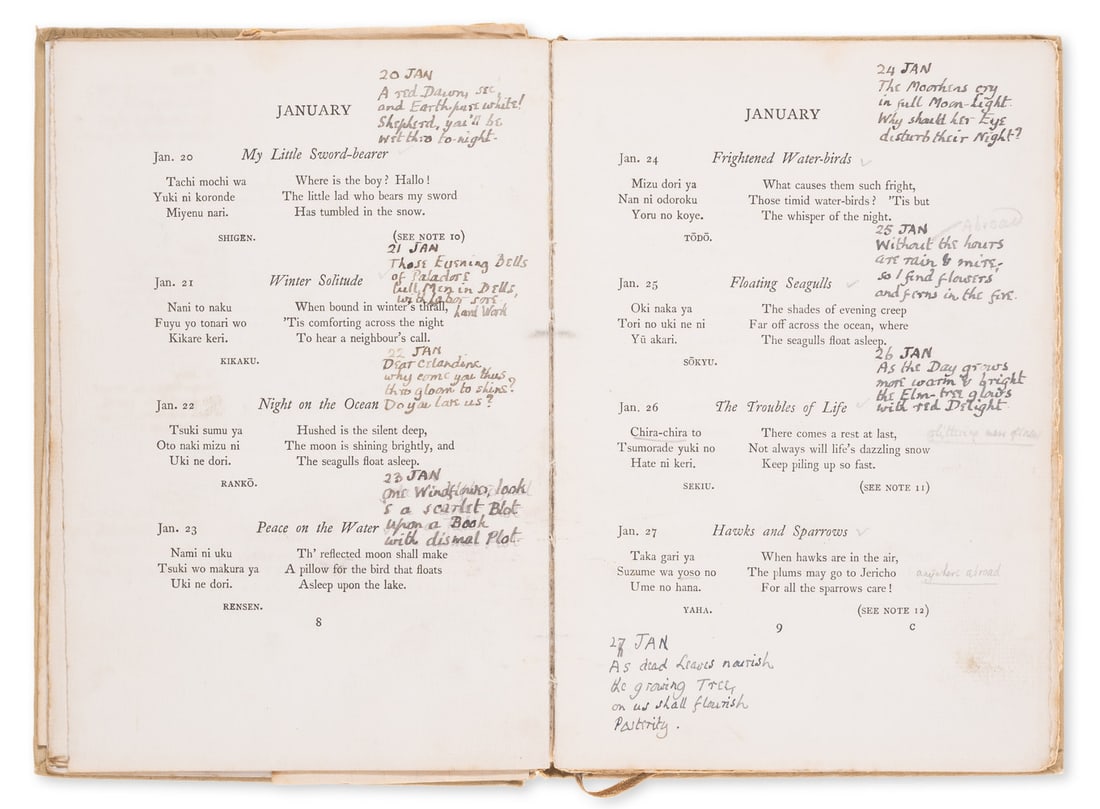 JANUARY
20 JAN
A red Dawn, see,
and Earth pure white!
Shepherd, you'll be
wet thro to-night.
Jan. 20 My Little Sword-bearer
Tachi mochi wa Where is the boy? Hallo!
Yuki ni koronde The little lad who bears my sword
Miyenu nari. Has tumbled in the snow.
SHIGEN. (SEE NOTE 10)
21 JAN
Those Evening Bells
of Paladore
lull Men in Dells,
with labor sore
hard Work
Jan. 21 Winter Solitude
Nani to naku When bound in winter's thrall,
Fuyu yo tonari wo 'Tis comforting across the night
Kikare keri. To hear a neighbour's call.
KIKAKU.
22 JAN
Dear Celandine,
why come you thus
thro gloom to shine?
Do you love us?
Jan. 22 Night on the Ocean
Tsuki sumu ya Hushed is the silent deep,
Oto naki mizu ni The moon is shining brightly, and
Uki ne dori. The seagulls float asleep.
RANKŌ.
23 JAN
one Windflower, look
's a scarlet Blot
upon a Book
with dismal Plot.
Jan. 23 Peace on the Water
Nami ni uku Th' reflected moon shall make
Tsuki wo makura ya A pillow for the bird that floats
Uki ne dori. Asleep upon the lake.
RENSEN.
8
JANUARY
24 JAN
The Moorhens cry
in full Moon-light.
Why should her Eye
disturb their Night?
Jan. 24 Frightened Water-birds
Mizu dori ya What causes them such fright,
Nan ni odoroku Those timid water-birds? 'Tis but
Yoru no koye. The whisper of the night.
TŌDŌ.
Abroad
25 JAN
Without the hours
are rain & mire,
so I find flowers
and ferns in the fire.
Jan. 25 Floating Seagulls
Oki naka ya The shades of evening creep
Tori no uki ne ni Far off across the ocean, where
Yū akari. The seagulls float asleep.
SŌKYU.
26 JAN
As the Day grows
more warm & bright
the Elm-tree glows
with red Delight.
Jan. 26 The Troubles of Life
Chira-chira to There comes a rest at last,
glittering
Tsumorade yuki no Not always will life's dazzling snow
Hate ni keri. Keep piling up so fast.
SEKIU. (SEE NOTE 11)
Jan. 27 Hawks and Sparrows
Taka gari ya When hawks are in the air,
Suzume wa yoso no The plums may go to Jericho
anywhere abroad
Ume no hana. For all the sparrows care!
YAHA. (SEE NOTE 12)
9 C
27 JAN
As dead Leaves nourish
the growing Tree,
on us shall flourish
Posterity.